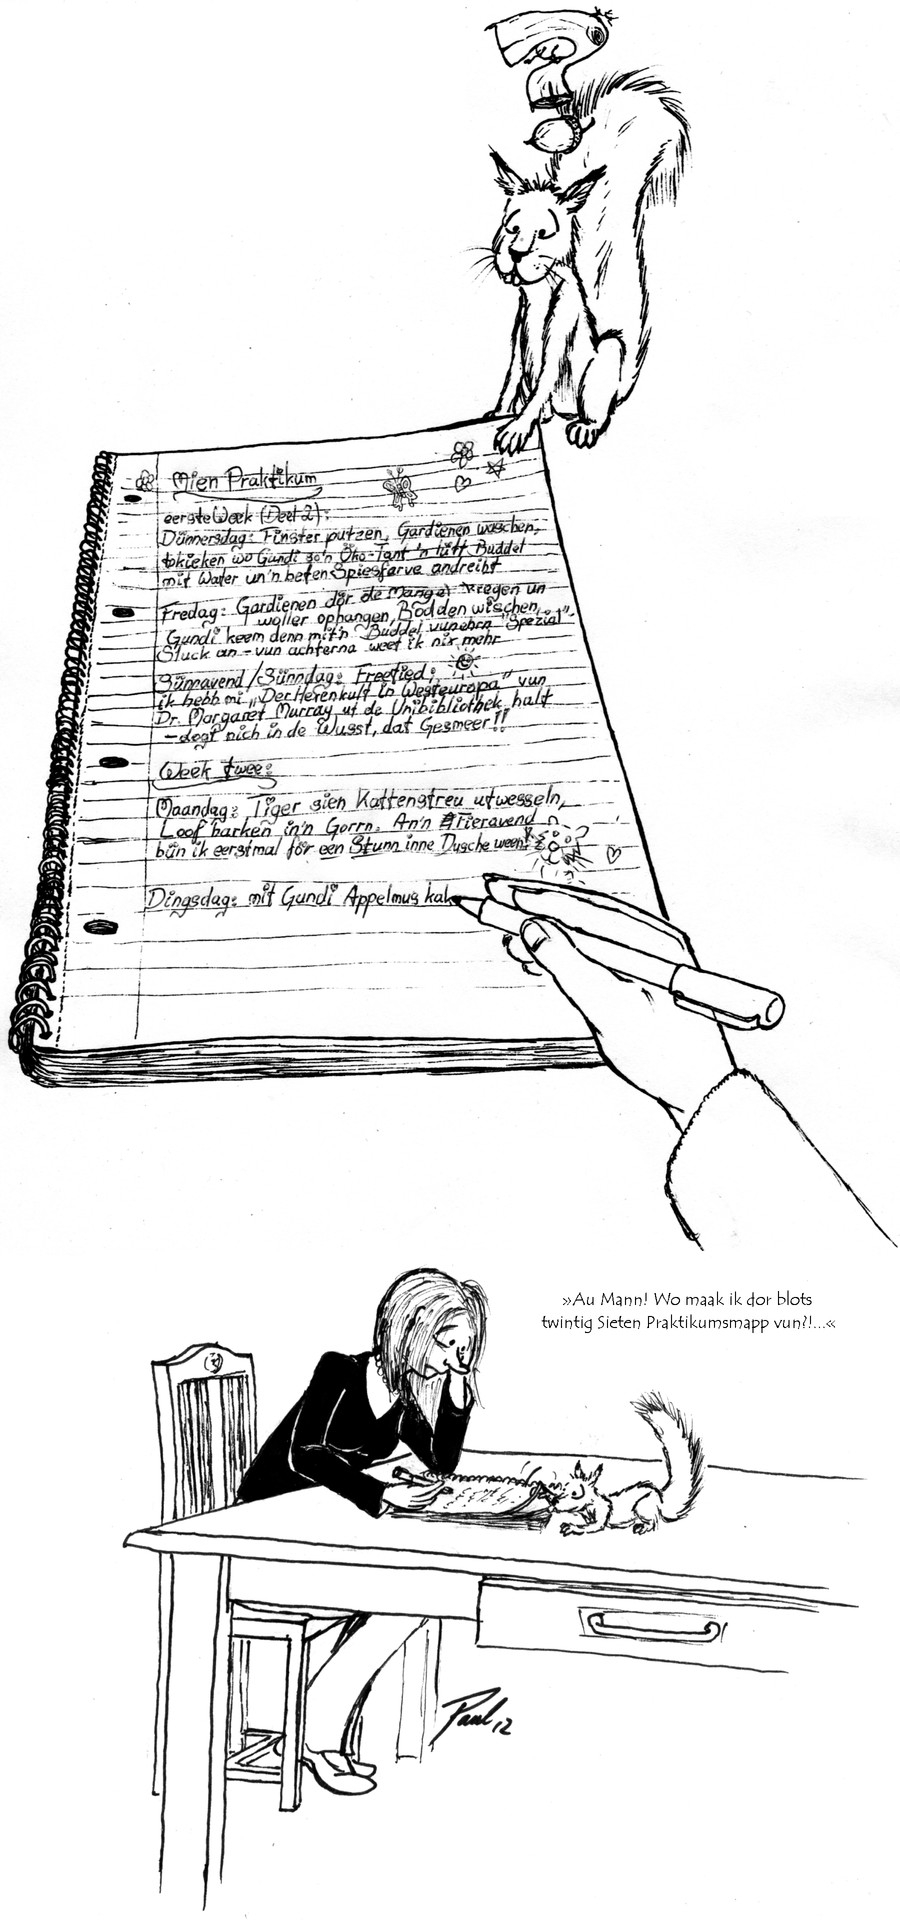 Mien Praktikum
eerste Week (Deel 2):
Dünnersdag: Finster putzen, Gardienen waschen,
tokieken wo Gundi so'n Öko-Tant 'n lütt Buddel
mit Water un'n beten Spiesfarve andreiht
Fredag: Gardienen dör de Mangel kregen un
woller ophangen, Bödden wischen,
Gundi keem denn mit'n Buddel vun ehrn "Spezial"
Stuck an - vun achterna weet ik nix mehr
Sünnavend/Sünndag: Freetied;
ik hebb mi „Der Hexenkult in Westeuropa" vun
Dr. Margaret Murray ut de Unibibliothek halt
- dögt nich in de Wusst, dat Gesmeer!!
Week twee:
Maandag: Tiger sien Kattenstreu utwesseln,
Loof harken in'n Gorrn. An'n Fieravend
bün ik eerstmal för een Stunn inne Dusche ween!
Dingsdag: mit Gundi Appelmus kak
»Au Mann! Wo maak ik dor blots
twintig Sieten Praktikumsmapp vun?!...«
Paul 12